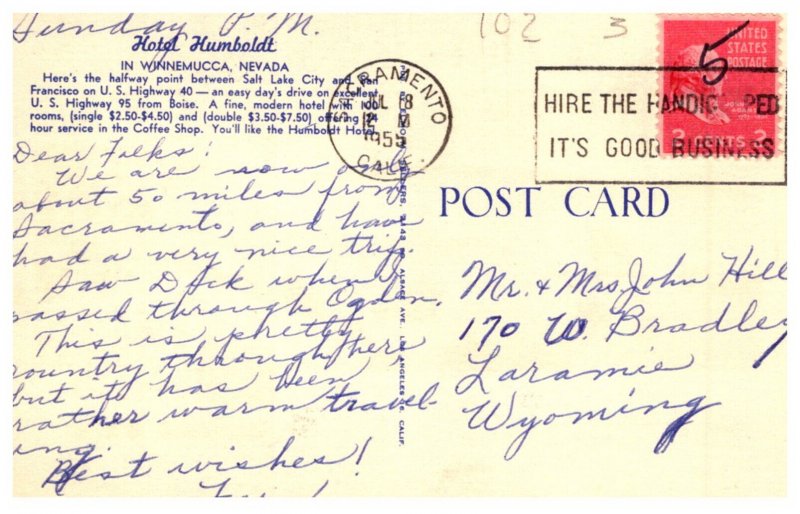 Sunday P.M.
102
3
Hotel Humboldt
IN WINNEMUCCA, NEVADA
Here's the halfway point between Salt Lake City and San
Francisco on U. S. Highway 40 — an easy day's drive on excellent
U. S. Highway 95 from Boise. A fine, modern hotel with 100
rooms, (single $2.50-$4.50) and (double $3.50-$7.50) offering 24
hour service in the Coffee Shop. You'll like the Humboldt Hotel.
SACRAMENTO
JUL 18
12 M
1955
CALIF.
HIRE THE HANDICAPPED
IT'S GOOD BUSINESS
UNITED
STATES
POSTAGE
5
JOHN
ADAMS
2 CENTS 2
Dear Folks:
We are now only
about 50 miles from
Sacramento, and have
had a very nice trip.
Saw Dick when I
passed through Ogden.
This is pretty
country through here,
but it has been
rather warm travel-
ing.
Best wishes!
POST CARD
Mr. & Mrs John Hill
170 W. Bradley
Laramie
Wyoming
ALSACE AVE., LOS ANGELES CALIF.